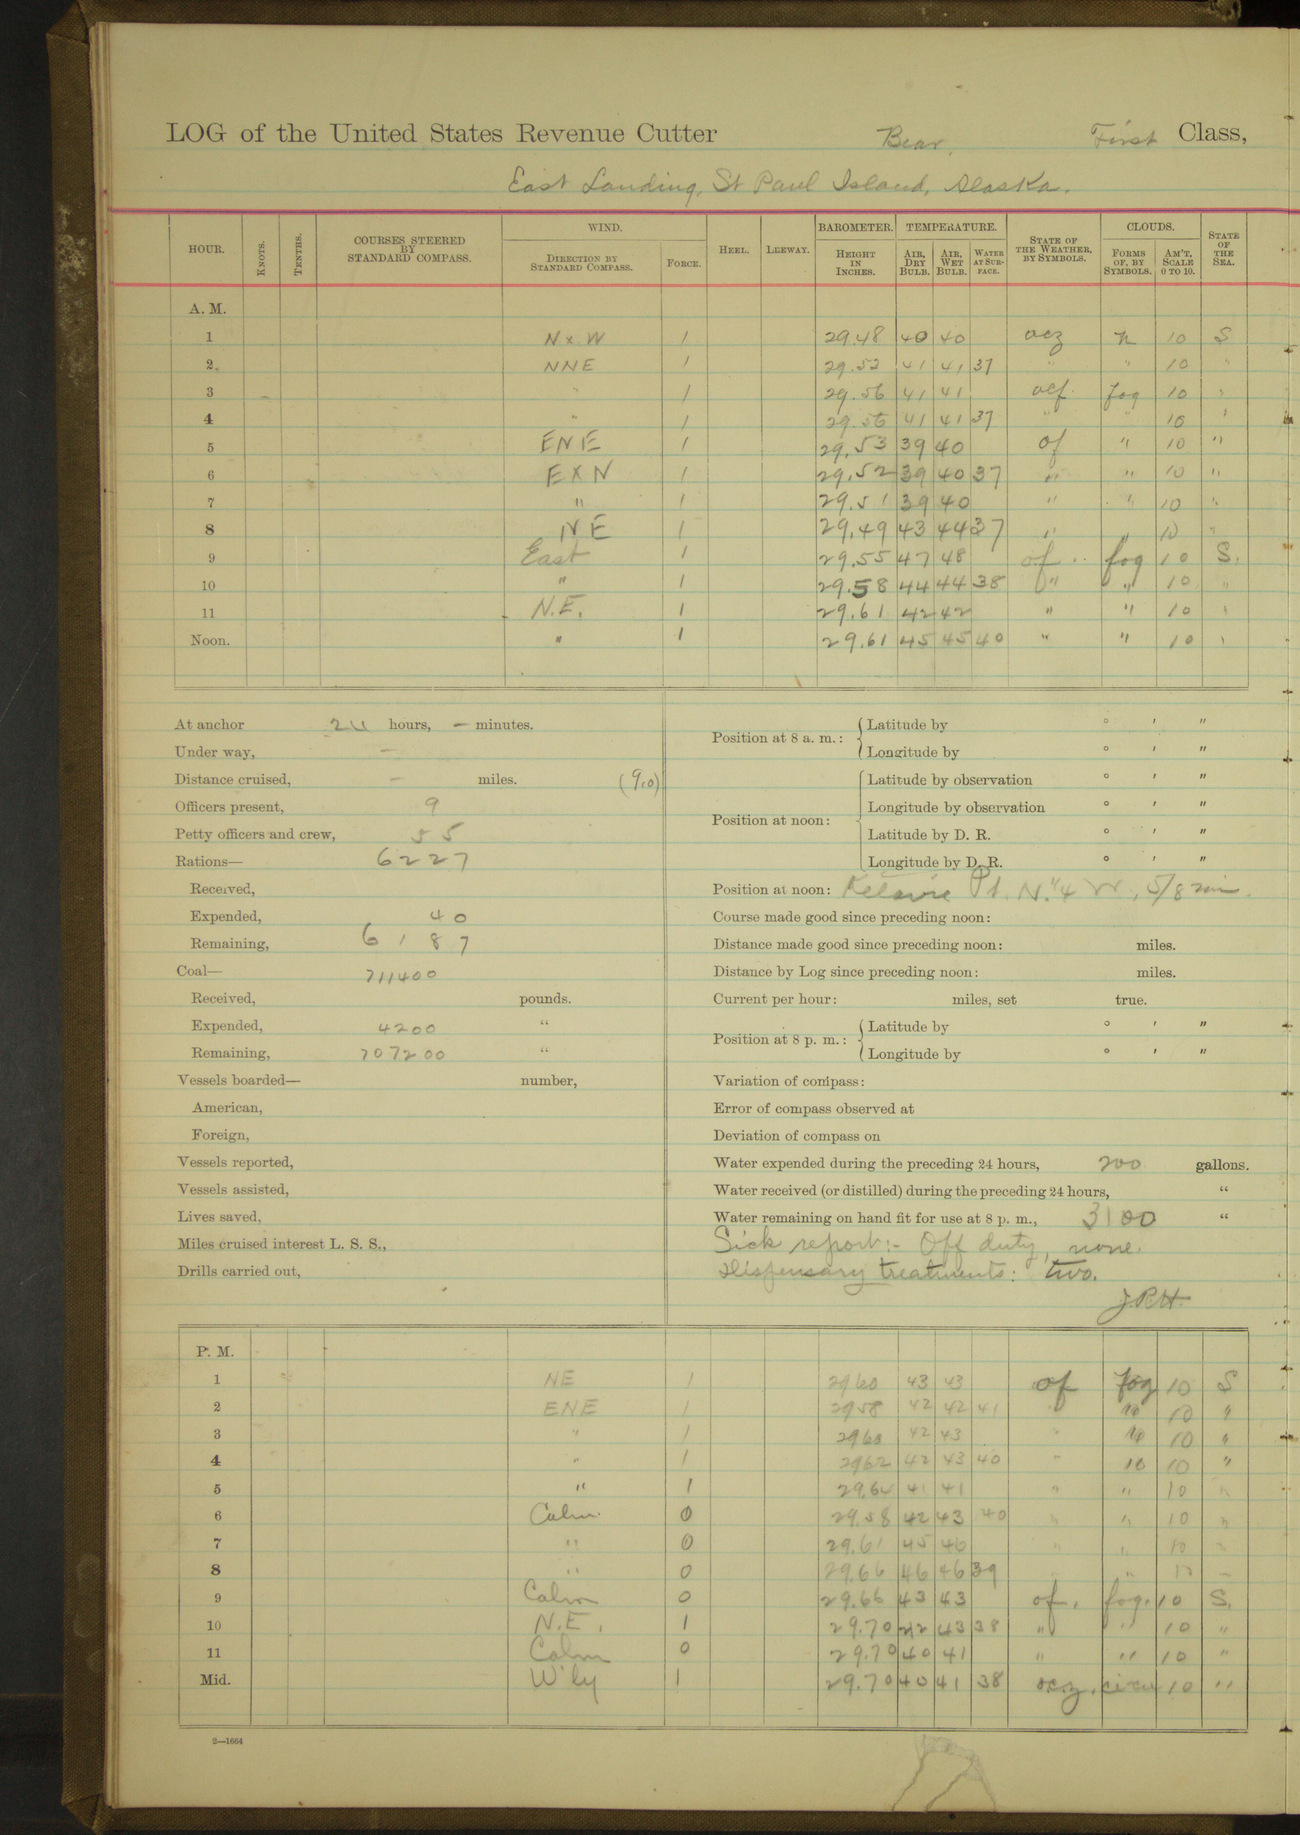 LOG of the United States Revenue Cutter Bear, First Class,
East Landing, St Paul Island, Alaska.
HOUR. KNOTS. TENTHS. COURSES STEERED BY STANDARD COMPASS. WIND. DIRECTION BY STANDARD COMPASS. FORCE. HEEL. LEEWAY. BAROMETER. HEIGHT IN INCHES. TEMPERATURE. AIR, DRY BULB. AIR, WET BULB. WATER AT SURFACE. STATE OF THE WEATHER, BY SYMBOLS. CLOUDS. FORMS OF, BY SYMBOLS. AM'T, SCALE 0 TO 10. STATE OF THE SEA.
A. M.
1 N x W 1 29.48 40 40 ocz n 10 S
2 NNE 1 29.52 41 41 37 " " 10 "
3 " 1 29.56 41 41 ocf fog 10 "
4 " 1 29.56 41 41 37 " " 10 "
5 ENE 1 29.53 39 40 of " 10 "
6 E X N 1 29.52 39 40 37 " " 10 "
7 " 1 29.51 39 40 " " 10 "
8 NE 1 29.49 43 44 37 " " 10 "
9 East 1 29.55 47 48 of fog 10 S.
10 " 1 29.58 44 44 38 " " 10 "
11 N.E. 1 29.61 42 42 " " 10 "
Noon. " 1 29.61 45 45 40 " " 10 "
At anchor 24 hours, — minutes.
Under way, —
Distance cruised, — miles. (9.0)
Officers present, 9
Petty officers and crew, 55
Rations— 6227
Received,
Expended, 40
Remaining, 6187
Coal— 711400
Received, pounds.
Expended, 4200 "
Remaining, 707200 "
Vessels boarded— number,
American,
Foreign,
Vessels reported,
Vessels assisted,
Lives saved,
Miles cruised interest L. S. S.,
Drills carried out,
Position at 8 a. m.: Latitude by ° ' "
Longitude by ° ' "
Position at noon: Latitude by observation ° ' "
Longitude by observation ° ' "
Latitude by D. R. ° ' "
Longitude by D. R. ° ' "
Position at noon: Pt. N. 1/4 W, 5/8 mi.
Course made good since preceding noon:
Distance made good since preceding noon: miles.
Distance by Log since preceding noon: miles.
Current per hour: miles, set true.
Position at 8 p. m.: Latitude by ° ' "
Longitude by ° ' "
Variation of compass:
Error of compass observed at
Deviation of compass on
Water expended during the preceding 24 hours, 200 gallons.
Water received (or distilled) during the preceding 24 hours, "
Water remaining on hand fit for use at 8 p. m., 3100 "
Sick report:- Off duty, none.
Dispensary treatments: two.
P. M.
1 NE 1 2960 43 43 of fog 10 S
2 ENE 1 2958 42 42 41 " " 10 "
3 " 1 2960 42 43 " " 10 "
4 " 1 2962 42 43 40 " " 10 "
5 " 1 29.64 41 41 " " 10 "
6 Calm. 0 29.58 42 43 40 " " 10 "
7 " 0 29.61 45 46 " " 10 "
8 " 0 29.66 46 46 39 " " 10 "
9 Calm 0 29.66 43 43 of. fog. 10 S.
10 N.E. 1 29.70 42 43 38 " " 10 "
11 Calm 0 29.70 40 41 " " 10 "
Mid. W'ly 1 29.70 40 41 38 ocz. 10 "
2—1664